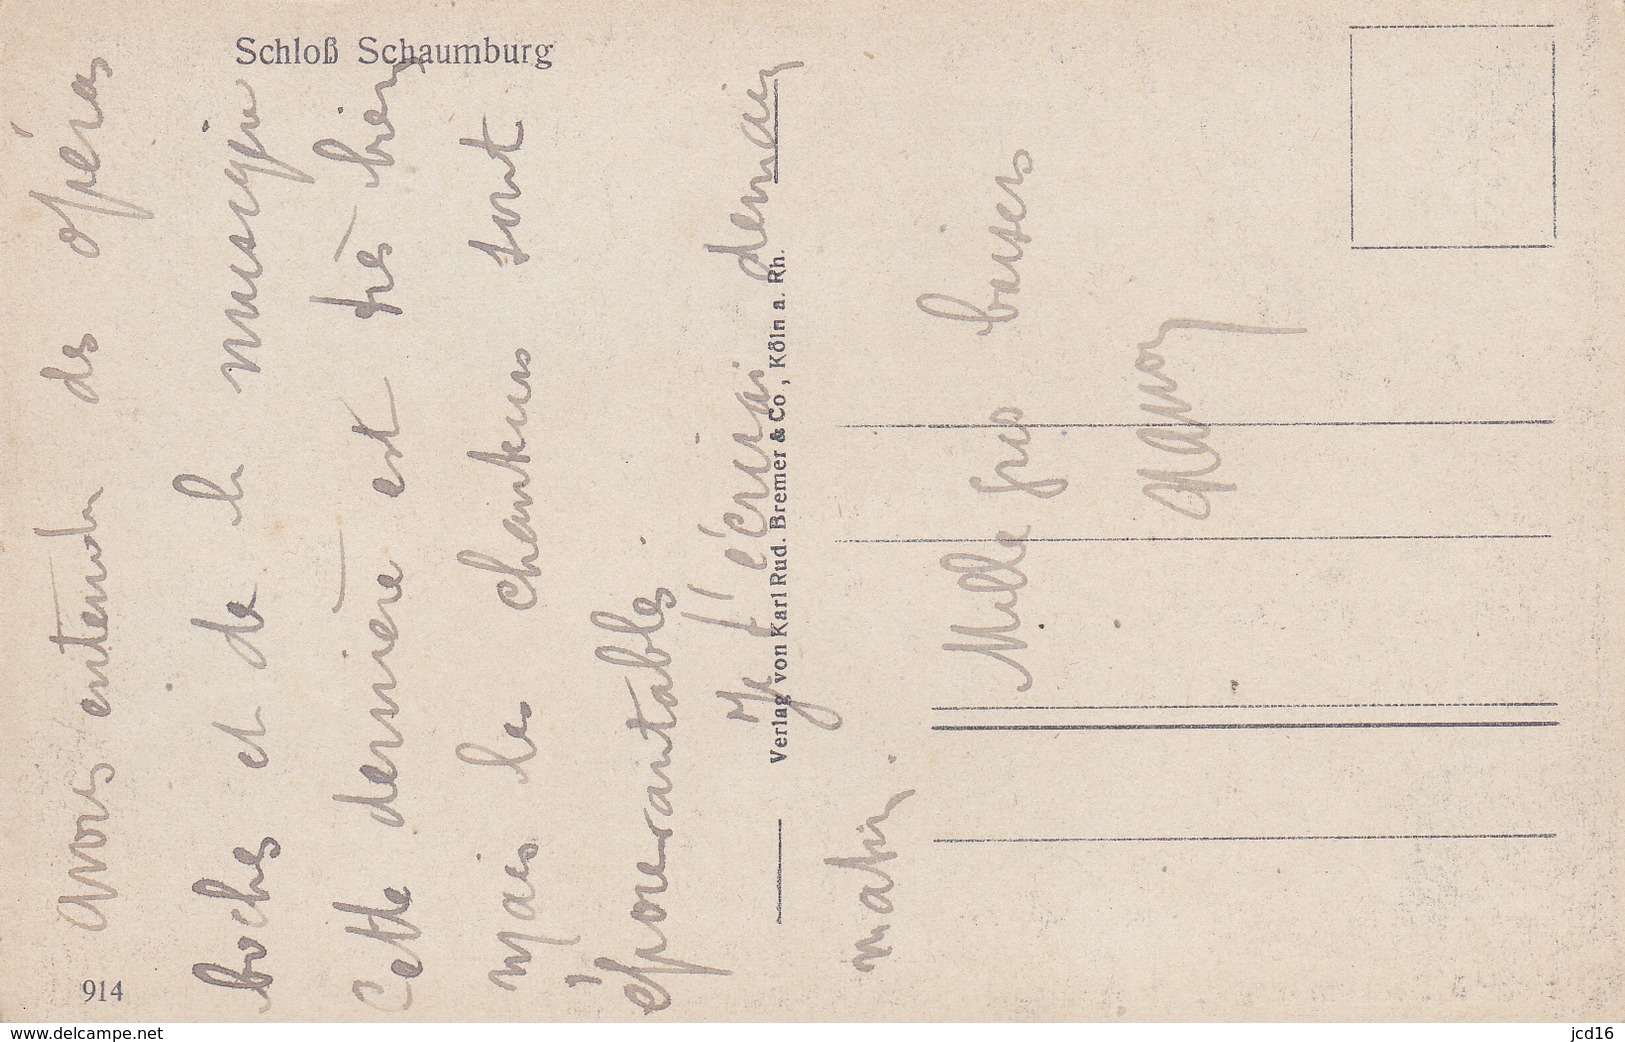 Schloß Schaumburg
avons entendu des opéras
boches et de la musique
Cette dernière est très bien
Mais les chanteurs sont
époérantables.
Je t'écrirai demain
matin.
Mille gros baisers
Verlag von Karl Rud. Bremer & Co, Köln a. Rh.
914
www.delcampe.net
jcd16